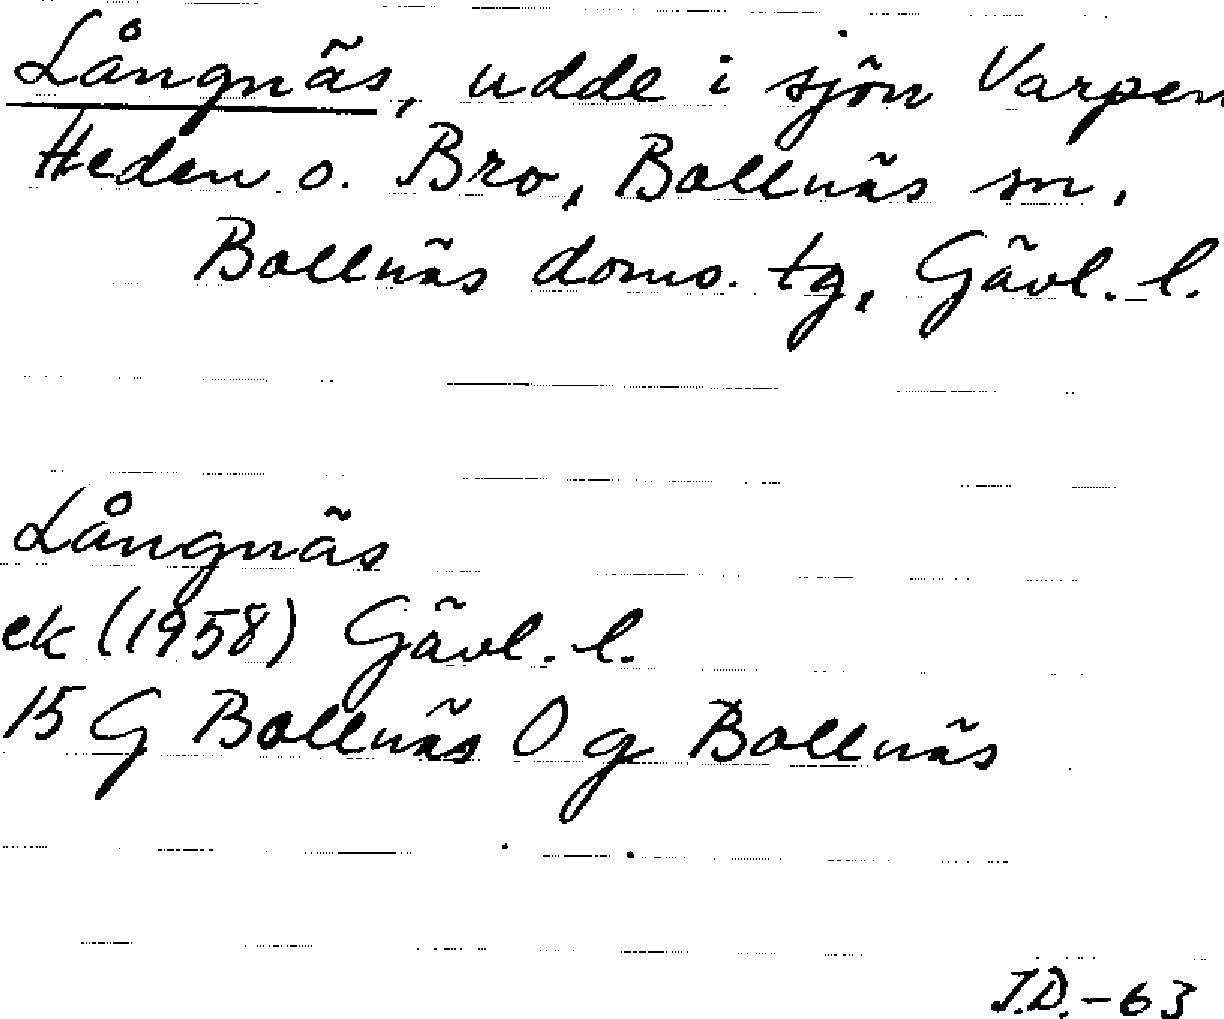 Långnäs, udde i sjön Varpen
Heden o. Bro, Bollnäs sn.
Bollnäs doms. tg, Gävl. l.
Långnäs
ek (1958) Gävl. l.
15 G Bollnäs O g Bollnäs
J.D. -63